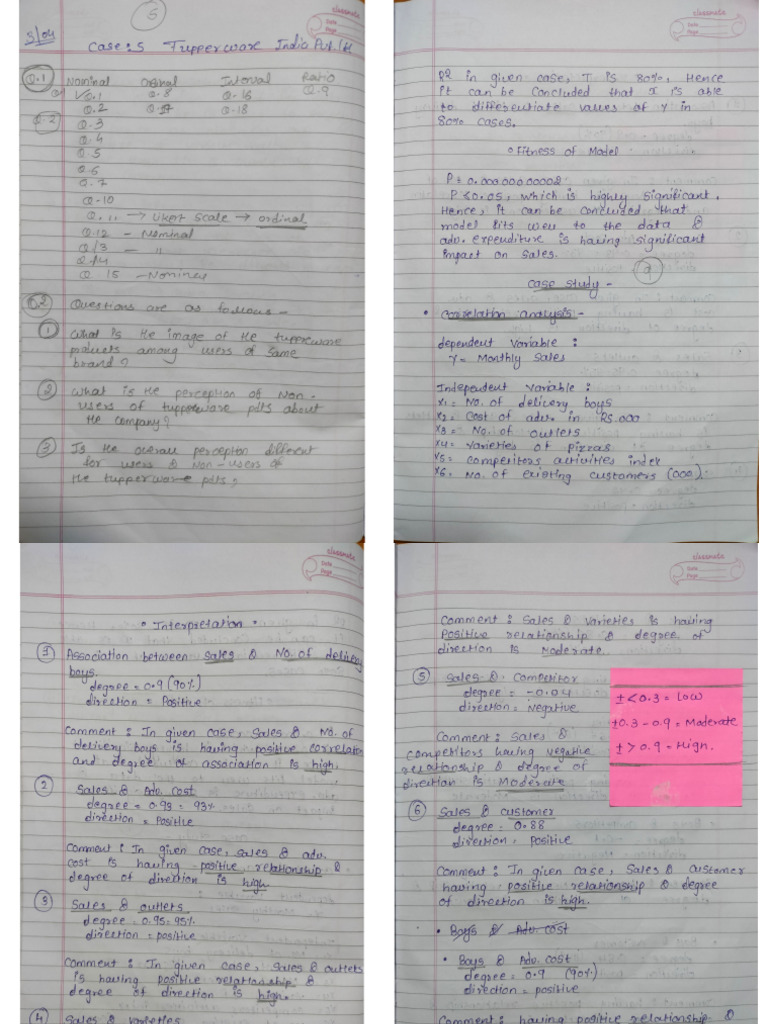 5
classmate
Date
Page
5/04
Case:5 Tupperware India Pvt. ltd
Q.1 Nominal Ordinal Interval Ratio
Q.1 Q.8 Q.16 Q.9
Q.2 Q.17 Q.18
Q.3
Q.4
Q.5
Q.6
Q.7
Q.10
Q.11 → Likert scale → ordinal
Q.12 - Nominal
Q.13 - "
Q.14
Q 15 - Nominal
Q.2 Questions are as follows -
1 What is the image of the tupperware
products among users of same
brand?
2 What is the perception of Non-
users of tupperware pdts about
the company?
3 Is the overall perception different
for users & Non-users of
the tupperware pdts?
classmate
Date
Page
R2 in given case, I is 80%, Hence
it can be concluded that X is able
to differentiate values of Y in
80% cases.
• Fitness of Model
P = 0.00000000002
P < 0.05, which is highly significant.
Hence, it can be concluded that
model fits well to the data &
adv. expenditure is having significant
impact on sales.
9
case study -
• Correlation analysis -
dependent variable :
Y = Monthly Sales
Independent variable :
X1 = No. of delivery boys
X2 = Cost of adv. in RS.000
X3 = No. of outlets
X4 = varieties of pizzas
X5 = competitors activities index
X6 = No. of existing customers (000)
classmate
Date
Page
• Interpretation •
1 Association between sales & No. of delivery
boys.
degree = 0.9 (90%)
direction = Positive
Comment : In given case, sales & No. of
delivery boys is having positive correlation
and degree of association is high.
2 Sales & Adv. cost
degree = 0.93 = 93%
direction = Positive
Comment : In given case, sales & adv.
cost is having positive relationship &
degree of direction is high.
3 Sales & outlets
degree = 0.95 = 95%
direction = positive
Comment : In given case, sales & outlets
is having positive relationship &
degree of direction is high.
4 Sales & varieties
classmate
Date
Page
Comment : Sales & varieties is having
Positive relationship & degree of
direction is Moderate.
5 Sales & Competitor
degree = -0.04
direction = Negative
Comment : Sales &
competitors having negative
relationship & degree of
direction is Moderate
± < 0.3 = Low
±0.3 - 0.9 = Moderate
± > 0.9 = High.
6 Sales & customer
degree = 0.88
direction = positive
Comment : In given case, sales & customer
having positive relationship & degree
of direction is high.
• Boys & Adv. cost
• Boys & Adv. cost
degree = 0.9 (90%)
direction = positive
Comment : having positive relationship &